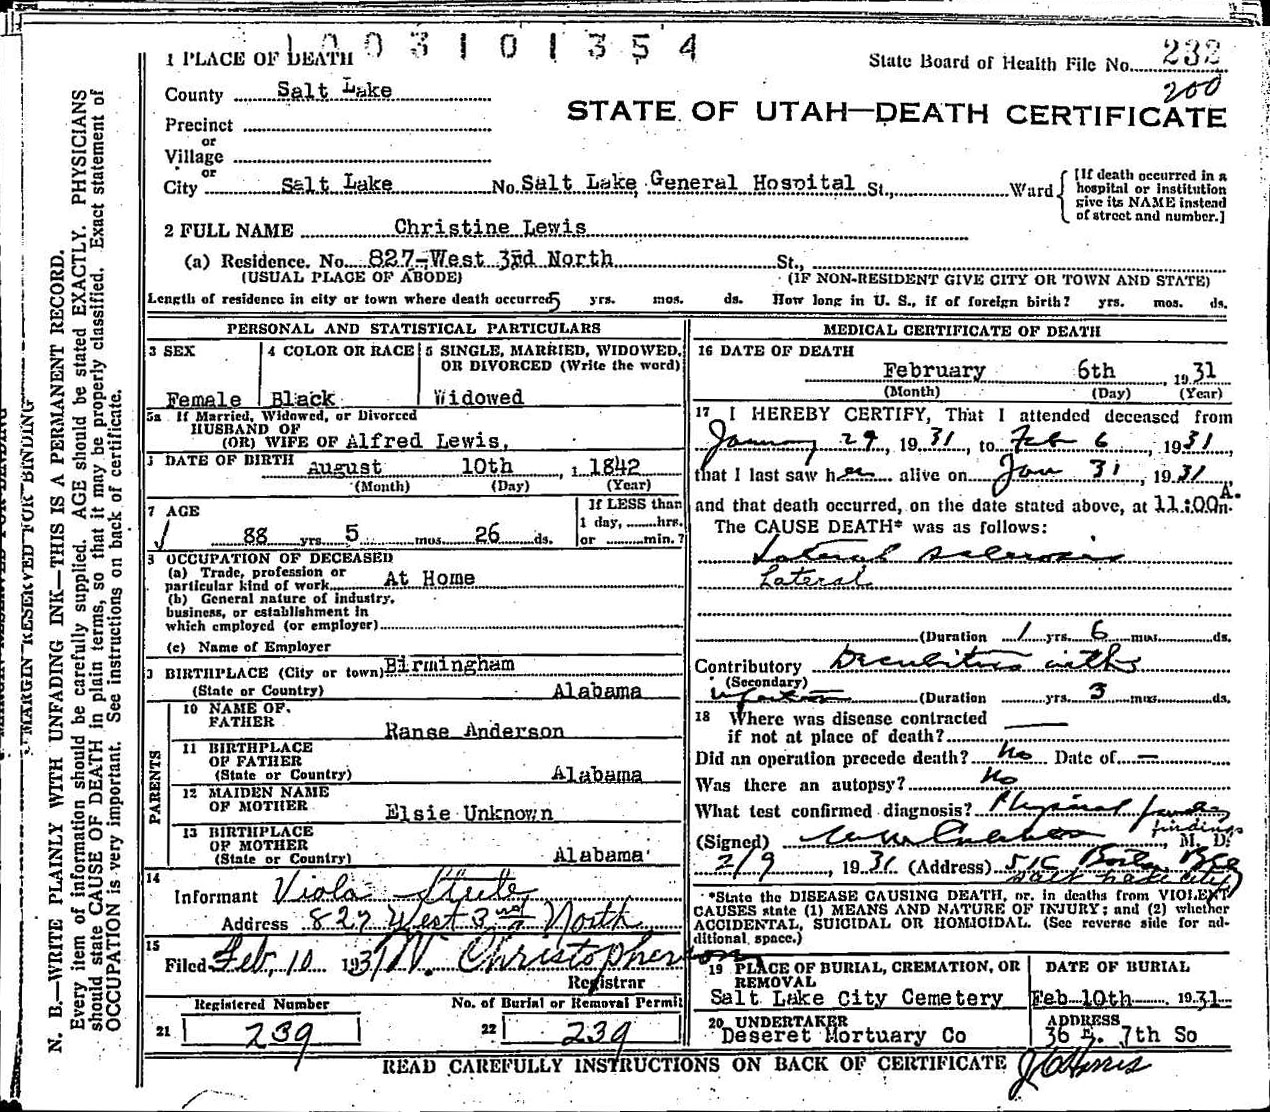 1003101354
1 PLACE OF DEATH
State Board of Health File No. 232
200
County Salt Lake
STATE OF UTAH—DEATH CERTIFICATE
Precinct
or
Village
or
City Salt Lake No. Salt Lake General Hospital St., Ward
[If death occurred in a
hospital or institution
give its NAME instead
of street and number.]
2 FULL NAME Christine Lewis
(a) Residence. No. 827-West 3rd North St.,
(USUAL PLACE OF ABODE) (IF NON-RESIDENT GIVE CITY OR TOWN AND STATE)
Length of residence in city or town where death occurred 5 yrs. mos. ds. How long in U. S., if of foreign birth? yrs. mos. ds.
PERSONAL AND STATISTICAL PARTICULARS
3 SEX
Female
4 COLOR OR RACE
Black
5 SINGLE, MARRIED, WIDOWED,
OR DIVORCED (Write the word)
Widowed
5a If Married, Widowed, or Divorced
HUSBAND OF
(OR) WIFE OF Alfred Lewis,
DATE OF BIRTH August 10th, 1842
(Month) (Day) (Year)
7 AGE
88 yrs. 5 mos. 26 ds.
If LESS than
1 day, hrs.
or min.?
8 OCCUPATION OF DECEASED
(a) Trade, profession or
particular kind of work At Home
(b) General nature of industry,
business, or establishment in
which employed (or employer)
(c) Name of Employer
BIRTHPLACE (City or town) Birmingham
(State or Country) Alabama
PARENTS
10 NAME OF
FATHER Ranse Anderson
11 BIRTHPLACE
OF FATHER
(State or Country) Alabama
12 MAIDEN NAME
OF MOTHER Elsie Unknown
13 BIRTHPLACE
OF MOTHER
(State or Country) Alabama
14
Informant Viola Steele
Address 827 West 3rd North
15
Filed Feb, 10 1931 W. Christopherson
Registrar
Registered Number
21 239
No. of Burial or Removal Permit
22 239
MEDICAL CERTIFICATE OF DEATH
16 DATE OF DEATH
February 6th, 1931
(Month) (Day) (Year)
17 I HEREBY CERTIFY, That I attended deceased from
January 29, 1931, to Feb 6, 1931
that I last saw her alive on Jan 31, 1931
and that death occurred, on the date stated above, at 11:00 A.m.
The CAUSE DEATH* was as follows:
Lateral sclerosis
Lateral
(Duration 1 yrs. 6 mos. ds.
Contributory Decubitus with
(Secondary)
infection (Duration yrs. 3 mos. ds.
18 Where was disease contracted
if not at place of death?
Did an operation precede death? No Date of —
Was there an autopsy? No
What test confirmed diagnosis? Physical findings
findings
(Signed) M. D.
2/9, 1931 (Address) 510 Boston Bldg
Salt Lake City
*State the DISEASE CAUSING DEATH, or, in deaths from VIOLENT
CAUSES state (1) MEANS AND NATURE OF INJURY; and (2) whether
ACCIDENTAL, SUICIDAL OR HOMICIDAL. (See reverse side for ad-
ditional space.)
19 PLACE OF BURIAL, CREMATION, OR
REMOVAL
Salt Lake City Cemetery
DATE OF BURIAL
Feb-10th 1931
20 UNDERTAKER
Deseret Mortuary Co
ADDRESS
36 E. 7th So
READ CAREFULLY INSTRUCTIONS ON BACK OF CERTIFICATE
J C Harris
MARGIN RESERVED FOR BINDING
N. B.—WRITE PLAINLY WITH UNFADING INK—THIS IS A PERMANENT RECORD.
Every item of information should be carefully supplied. AGE should be stated EXACTLY. PHYSICIANS
should state CAUSE OF DEATH in plain terms, so that it may be properly classified. Exact statement of
OCCUPATION is very important. See instructions on back of certificate.